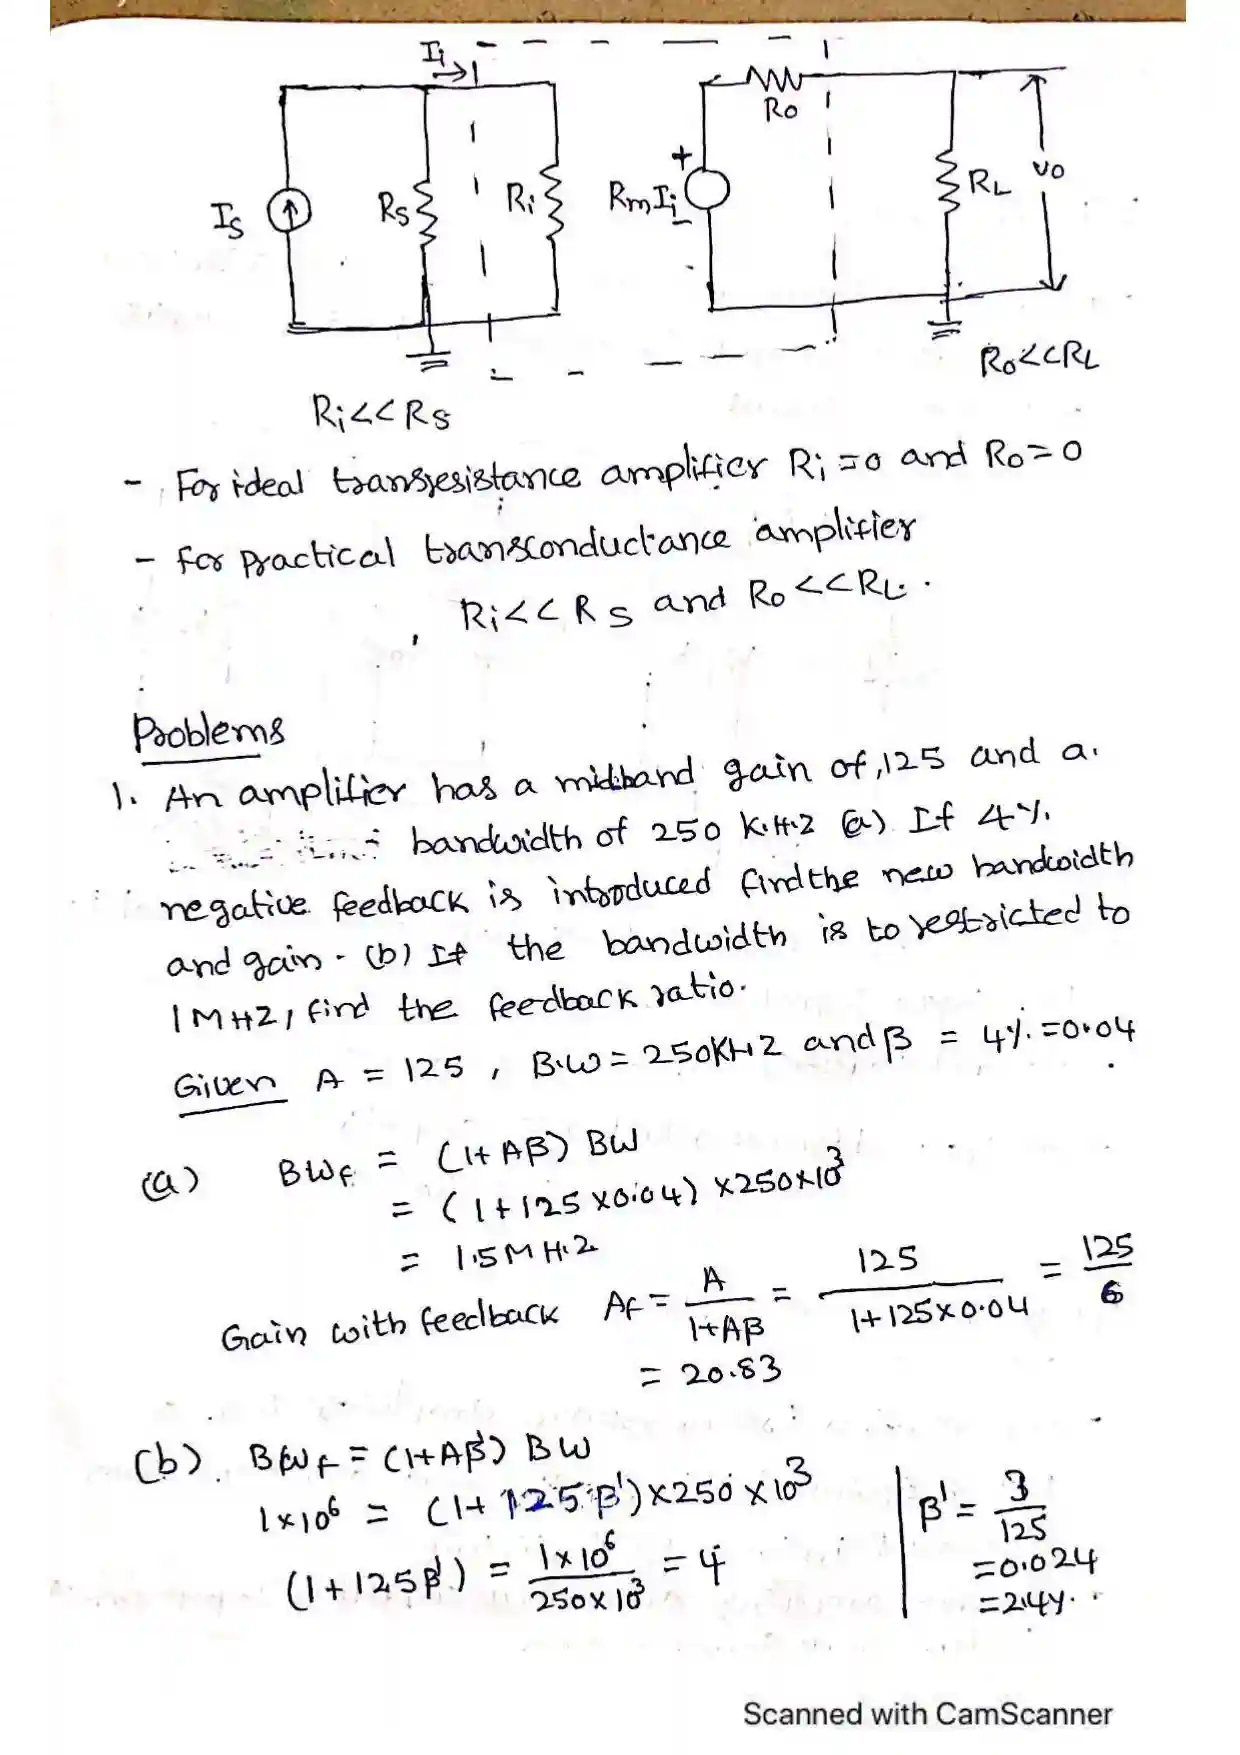 Ii
Is
Rs
Ri
RmIi
+
-
Ro
RL
vo
Ri<<Rs
Ro<<RL
- For ideal transresistance amplifier Ri=0 and Ro=0
- for practical transconductance amplifier
Ri<<Rs and Ro<<RL.
Problems
1. An amplifier has a midband gain of 125 and a
bandwidth of 250 K.H.Z (a) If 4%
negative feedback is introduced find the new bandwidth
and gain. (b) If the bandwidth is to restricted to
1MHZ, find the feedback ratio.
Given A = 125, B.W = 250KHZ and β = 4% = 0.04
(a) BWf = (1+Aβ) BW
= (1+125×0.04) ×250×10³
= 1.5MH.Z
Gain with feedback Af = A/(1+Aβ) = 125/(1+125×0.04) = 125/6
= 20.83
(b) BWf = (1+Aβ') BW
1×10⁶ = (1+125β')×250×10³
(1+125β') = 1×10⁶/250×10³ = 4
β' = 3/125
=0.024
=2.4%
Scanned with CamScanner